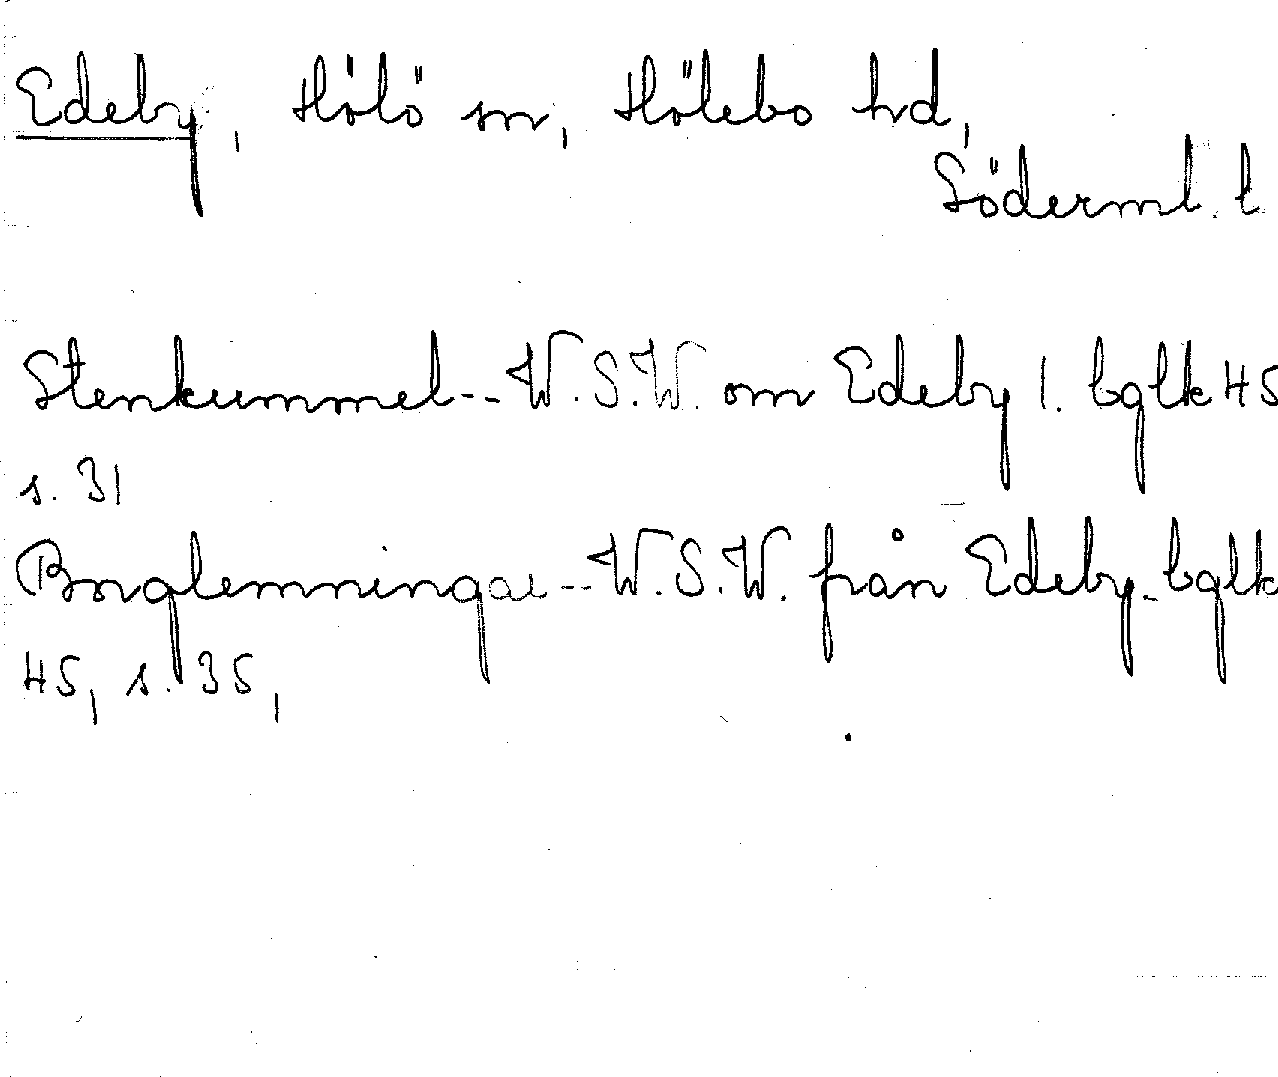 Edeby, Hölö sn, Hölebo hd,
Söderml. l
Stenkummel -- W.S.W. om Edeby l. bglk 45
s. 31
Borglemningar -- W.S.W. från Edeby - bglk
45, s. 35,